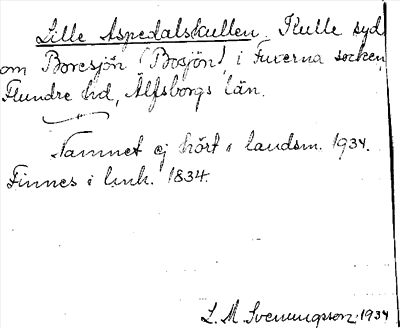 Lille Aspedalskullen. Kulle syd
om Boresjön (Bosjön), i Fuxerna socken,
Flundre hd, Älfsborgs län.
Namnet ej hört i landsm. 1934.
Finnes i link. 1834.
L. M. Svenungsson. 1934